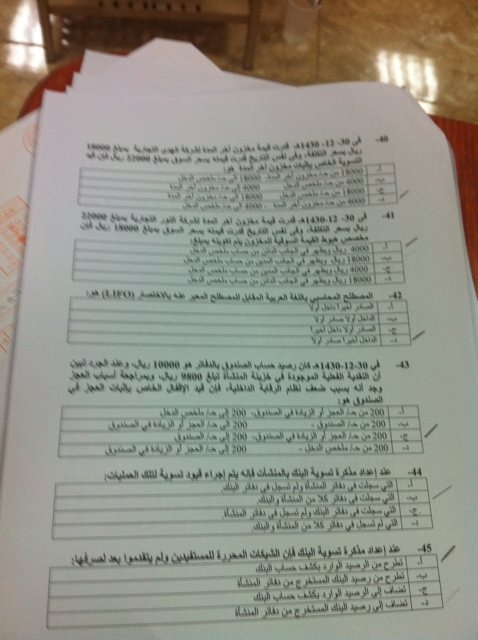 40- في 30-12-1430هـ قدرت قيمة مخزون آخر المدة لشركة الهدى التجارية بمبلغ 18000
ريال بسعر التكلفة، وفي نفس التاريخ قدرت قيمته بسعر السوق بمبلغ 22000 ريال فإن قيد
التسوية الخاص بإثبات مخزون آخر المدة هو:
أ- 18000 من حـ/ مخزون آخر المدة، 18000 إلى حـ/ ملخص الدخل
ب- 4000 من حـ/ ملخص الدخل 4000 إلى حـ/ مخزون آخر المدة
ج- 18000 من حـ/ ملخص الدخل 18000 إلى حـ/ مخزون آخر المدة
د- 4000 من حـ/ مخزون آخر المدة ، 4000 إلى حـ/ ملخص الدخل
41- في 30-12-1430هـ قدرت قيمة مخزون آخر المدة لشركة النور التجارية بمبلغ 22000
ريال بسعر التكلفة، وفي نفس التاريخ قدرت قيمته بسعر السوق بمبلغ 18000 ريال فإن
مخصص هبوط القيمة السوقية للمخزون يتم تكوينه بمبلغ:
أ- 4000 ريال ويظهر في الجانب الدائن من حساب ملخص الدخل
ب- 18000 ريال ويظهر في الجانب المدين من حساب ملخص الدخل
ج- 4000 ريال ويظهر في الجانب المدين من حساب ملخص الدخل
د- 18000 ريال ويظهر في الجانب الدائن من حساب ملخص الدخل
42- المصطلح المحاسبي باللغة العربية المقابل للمصطلح المعبر عنه بالاختصار (LIFO) هو:
أ- الصادر أخيرا داخل أولا
ب- الداخل أولا صادر أولا
ج- الصادر أولا داخل أخيرا
د- الداخل أخيرا صادر أولا
43- في 30-12-1430هـ كان رصيد حساب الصندوق بالدفاتر هو 10000 ريال، وعند الجرد تبين
أن النقدية الفعلية الموجودة في خزينة المنشأة تبلغ 9800 ريال، وبمراجعة أسباب العجز
وجد أنه بسبب ضعف نظام الرقابة الداخلية، فإن قيد الإقفال الخاص بإثبات العجز في
الصندوق هو:
أ- 200 من حـ/ العجز أو الزيادة في الصندوق، 200 إلى حـ/ ملخص الدخل
ب- 200 من حـ/ الصندوق ، 200 إلى حـ/ العجز أو الزيادة في الصندوق
ج- 200 من حـ/ العجز أو الزيادة في الصندوق، 200 إلى حـ/ الصندوق
د- 200 من حـ/ ملخص الدخل ، 200 إلى حـ/ العجز أو الزيادة في الصندوق
44- عند إعداد مذكرة تسوية البنك بالمنشآت فإنه يتم إجراء قيود تسوية لتلك العمليات:
أ- التي سجلت في دفاتر المنشأة ولم تسجل في دفاتر البنك.
ب- التي سجلت في دفاتر كلا من المنشأة والبنك.
ج- التي سجلت في دفاتر البنك ولم تسجل في دفاتر المنشأة.
د- التي لم تسجل في دفاتر كلا من المنشأة والبنك.
45- عند إعداد مذكرة تسوية البنك فإن الشيكات المحررة للمستفيدين ولم يتقدموا بعد لصرفها:
أ- تطرح من الرصيد الوارد بكشف حساب البنك
ب- تطرح من رصيد البنك المستخرج من دفاتر المنشأة
ج- تضاف إلى الرصيد الوارد بكشف حساب البنك
د- تضاف إلى رصيد البنك المستخرج من دفاتر المنشأة